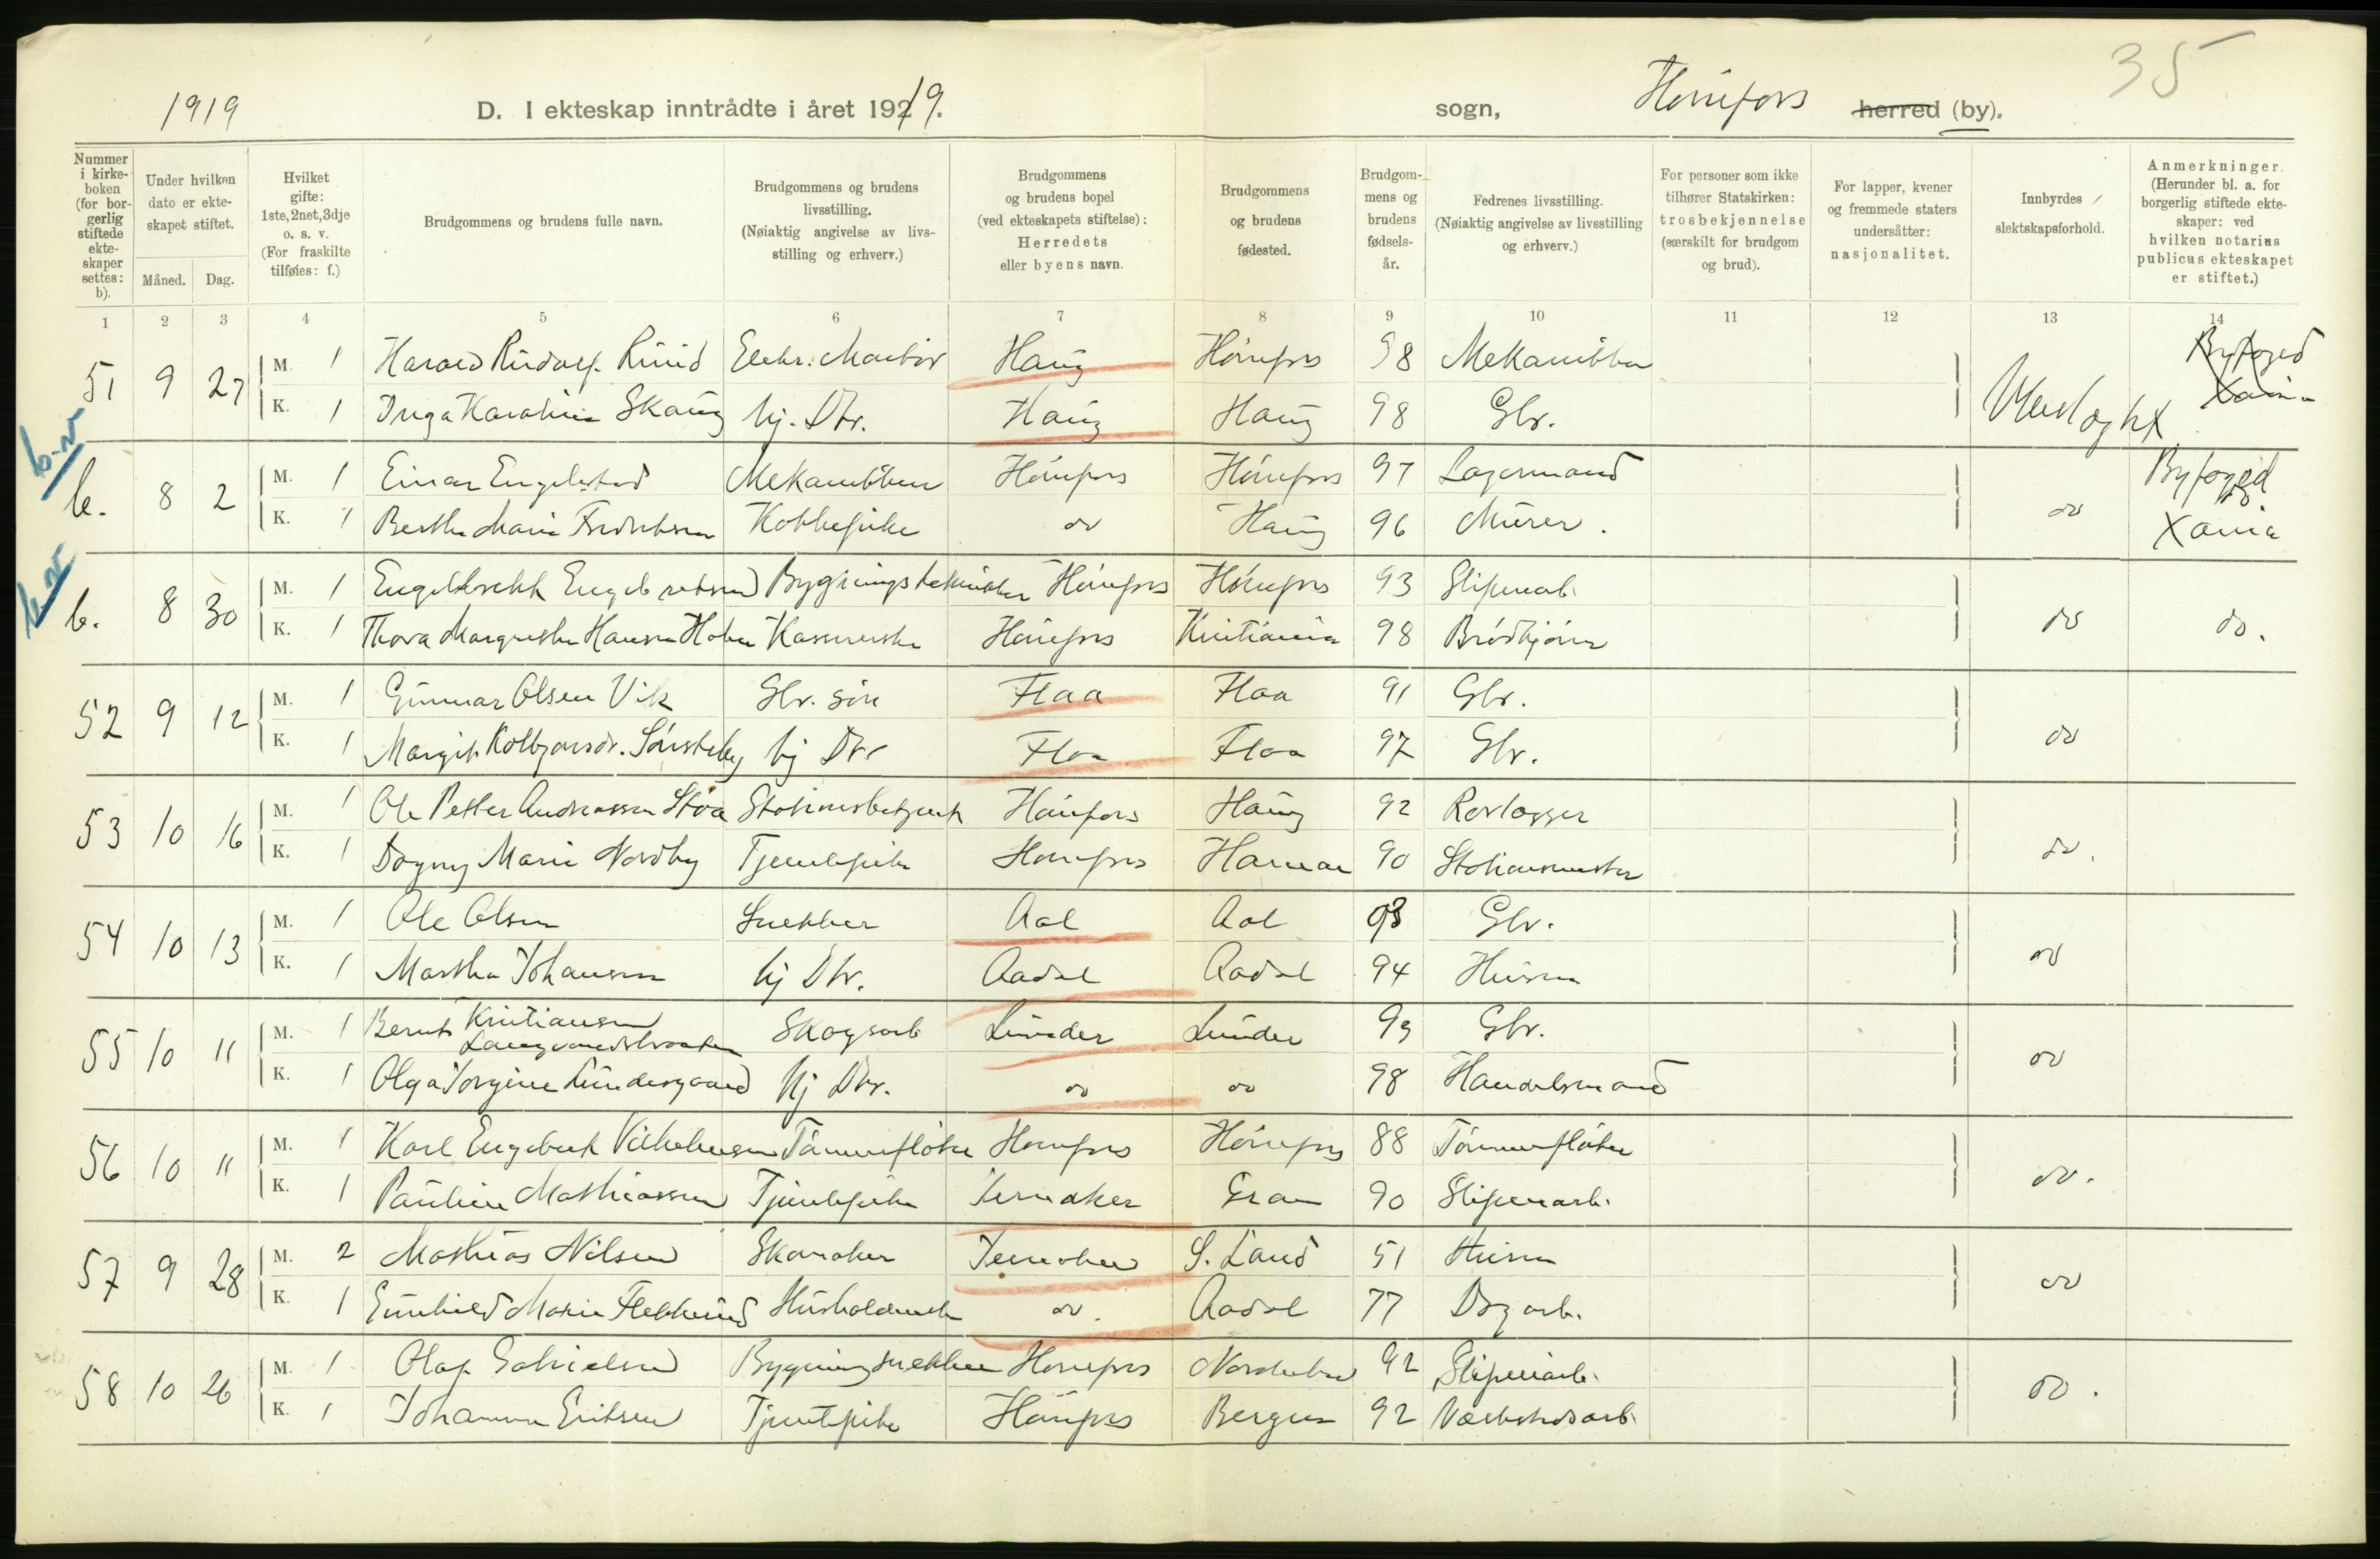 35
1919
D. I ekteskap inntrådte i året 1919.
sogn,
Hønefoss
herred (by).
Nummer i kirkeboken (for borgerlig stiftede ekteskaper settes: b).
Under hvilken dato er ekteskapet stiftet.
Måned.
Dag.
Hvilket gifte: 1ste, 2net, 3dje o. s. v. (For fraskilte tilføies: f.)
Brudgommens og brudens fulle navn.
Brudgommens og brudens livsstilling. (Nøiaktig angivelse av livsstilling og erhverv.)
Brudgommens og brudens bopel (ved ekteskapets stiftelse): Herredets eller byens navn.
Brudgommens og brudens fødested.
Brudgommens og brudens fødselsår.
Fedrenes livsstilling. (Nøiaktig angivelse av livsstilling og erhverv.)
For personer som ikke tilhører Statskirken: trosbekjennelse (særskilt for brudgom og brud).
For lapper, kvener og fremmede staters undersåtter: nasjonalitet.
Innbyrdes slektskapsforhold.
Anmerkninger. (Herunder bl. a. for borgerlig stiftede ekteskaper: ved hvilken notarius publicus ekteskapet er stiftet.)
1 2 3 4 5 6 7 8 9 10 11 12 13 14
51 9 27 M. 1 Harald Rudolf Ruud Elektr. Montør Haug Hønefos 98 Mekaniker Byfoged Xania
K. 1 Inga Karoline Skaug hj. Dtr. Haug Haug 98 Gbr. Ubeslægtet
b. 8 2 M. 1 Einar Engelstad Mekaniker Hønefos Hønefos 97 Lagermand Byfoged
K. 1 Berthe Marie Fredriksen Kokkepike do Haug 96 Murer. do Xania
b. 8 30 M. 1 Engelbrekt Engebretsen Bygningstekniker Hønefos Hønefos 93 Sliperiarb.
K. 1 Thora Margrethe Hansen Kasserske Hønefos Kristiania 98 Brødkjører do do.
52 9 12 M. 1 Gunnar Olsen Vik Gbr. søn Flaa Flaa 91 Gbr.
K. 1 Margit Kolbjørnsdr. Sørsteby hj Dtr Flaa Flaa 97 Gbr. do
53 10 16 M. 1 Ole Petter Andreassen Stoa Stationsbetjent Hønefos Haug 92 Rørlægger
K. 1 Dagny Marie Nordby Tjenestepike Hønefos Hamar 90 Stationsmester do.
54 10 13 M. 1 Ole Olsen Snekker Aal Aal 93 Gbr.
K. 1 Martha Johansen hj Dtr. Aadal Aadal 94 Husm do
55 10 11 M. 1 Bernt Kristiansen Langvandsbraaten Skogsarb Lunder Lunder 93 Gbr.
K. 1 Olga Jorgine Lundesgaard hj Dtr. do do 98 Handelsmand do
56 10 11 M. 1 Karl Engebret Vilhelmsen Tømmerfløter Hønefos Hønefos 88 Tømmerfløter
K. 1 Pauline Mathiassen Tjenestepike Jevnaker Gran 90 Sliperiarb. do.
57 9 28 M. 2 Mathias Nilsen Skomaker Jevnaker S. Land 51 Husm
K. 1 Gunhild Marie Flekkerud Husholderske do. Aadal 77 Dagarb. do
58 10 26 M. 1 Olaf Gabrielsen Bygningssnekker Hønefos Norderhov 92 Sliperiarb.
K. 1 Johanne Eriksen Tjenestepike Hønefos Bergen 92 Verkstedsarb. do.